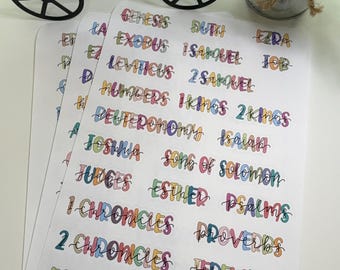 GENESIS RUTH EZRA
EXODUS 1 SAMUEL JOB
LEVITICUS 2 SAMUEL
NUMBERS 1 KINGS 2 KINGS
DEUTERONOMY ISAIAH
JOSHUA SONG OF SOLOMON
JUDGES ESTHER PSALMS
1 CHRONICLES PROVERBS
2 CHRONICLES